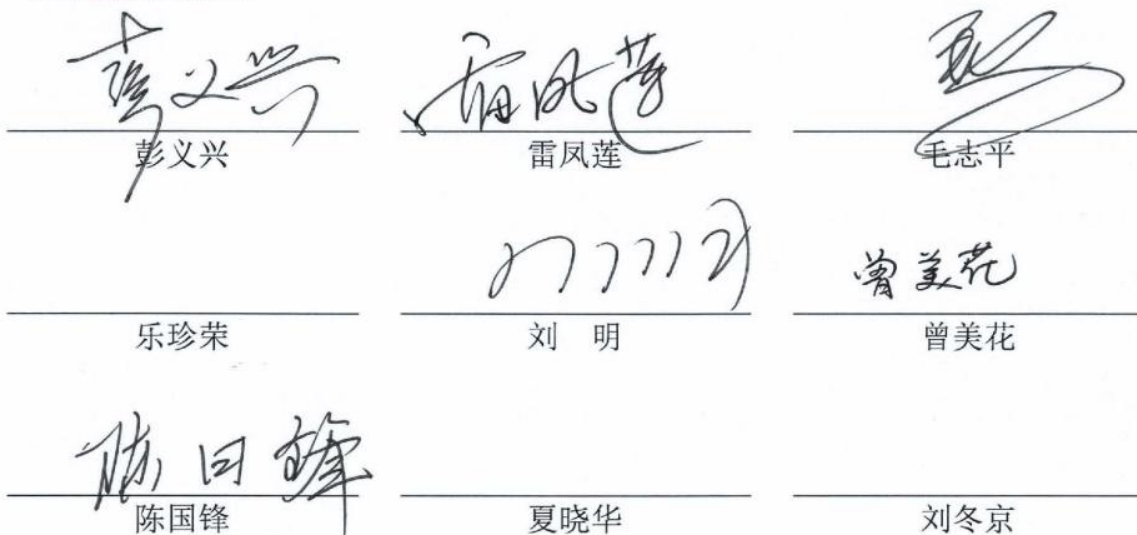 彭义兴 雷凤莲
彭义兴 雷凤莲 毛志平
曾美花
乐珍荣 刘 明 曾美花
陈国锋
陈国锋 夏晓华 刘冬京